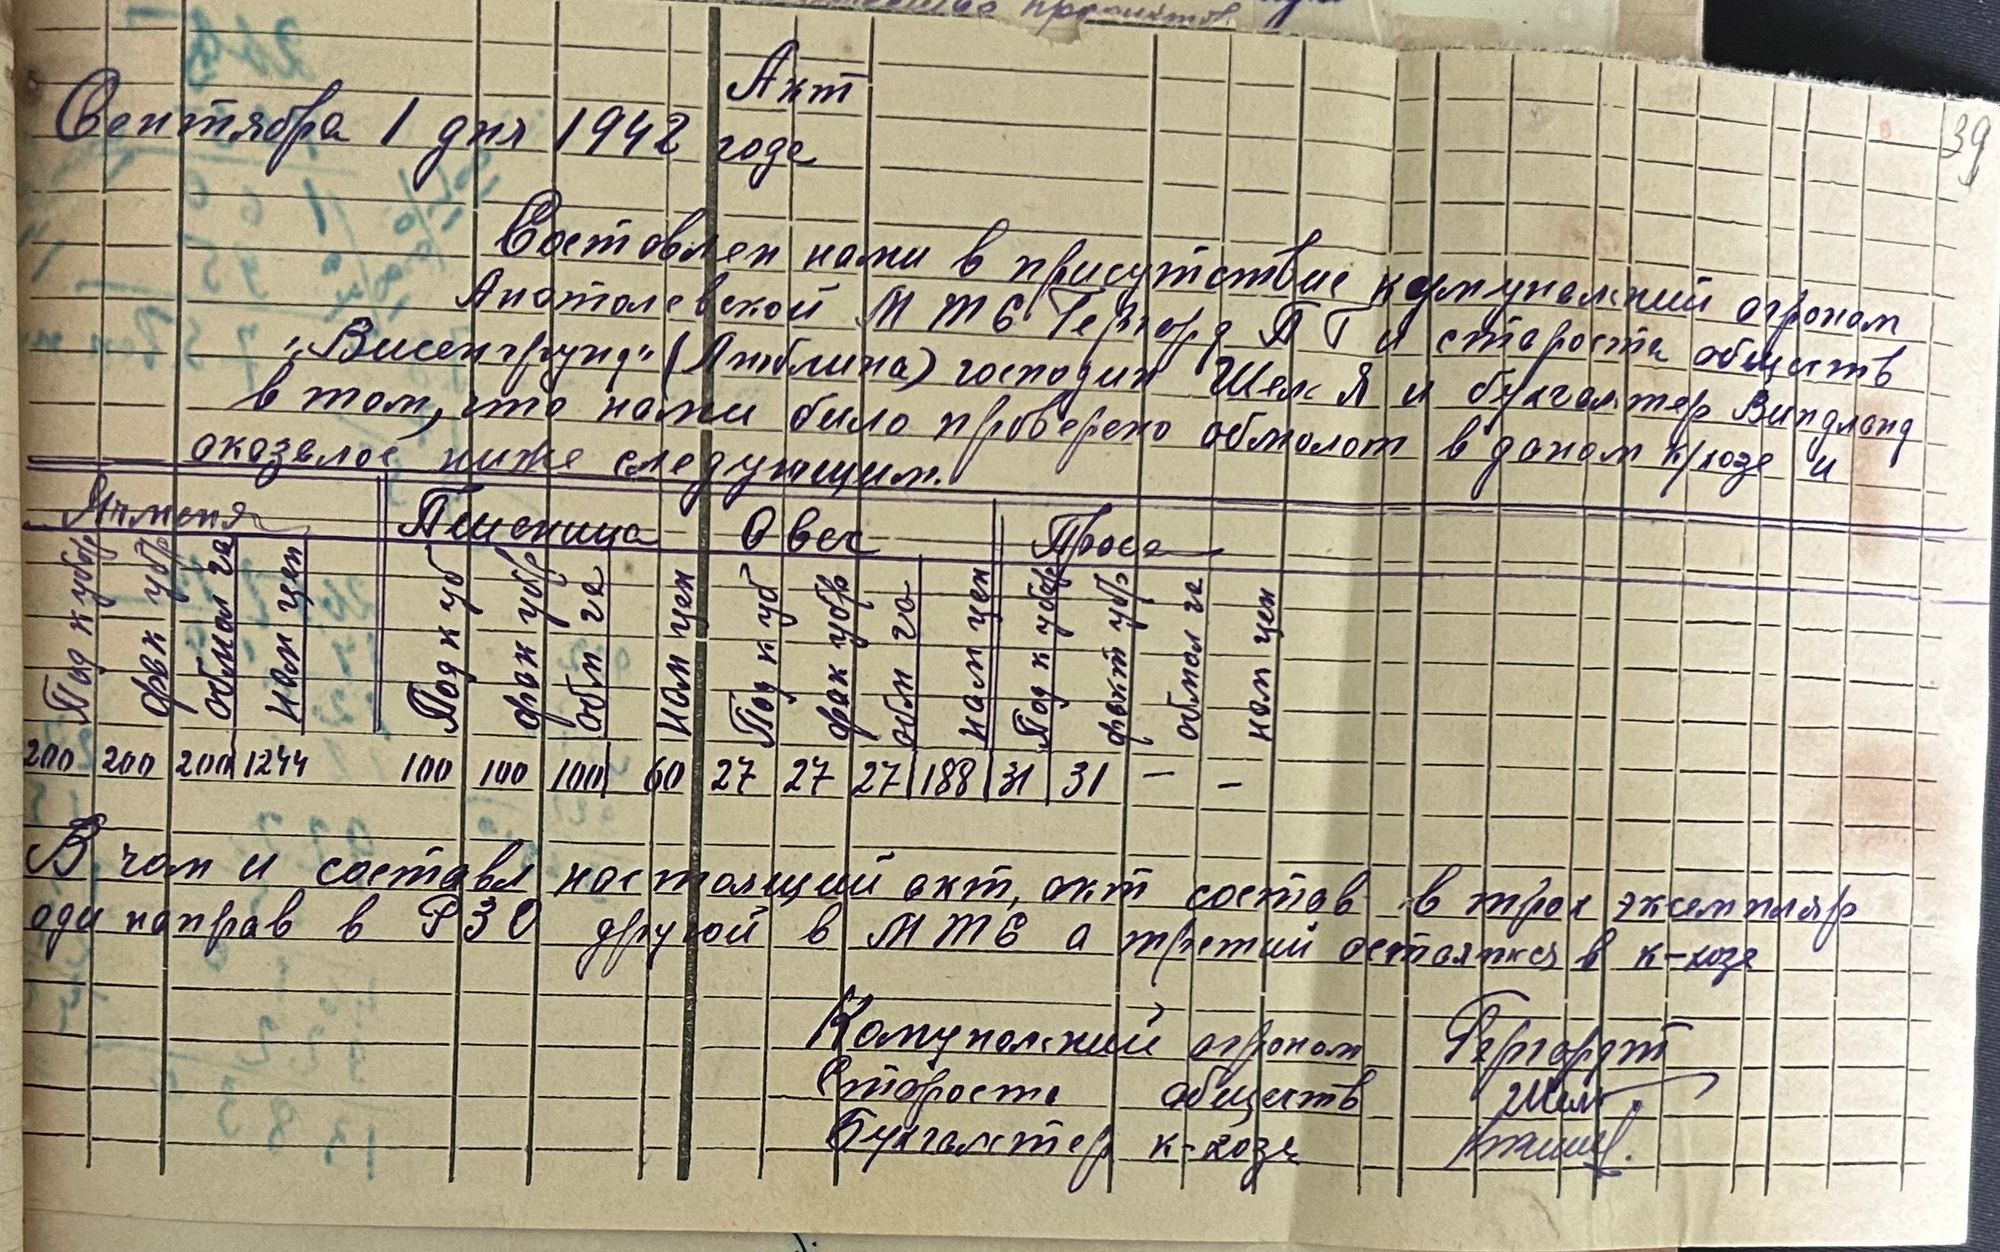 39
Акт
Сентября 1 дня 1942 годе
Составлен нами в присутствие комунальний огроном
Анатолевской МТС Гергард П Г и староста обществ
„Висенгрунд" (Люблина) господин Шелк Я и бухгалтер Виндланд
в том, что нами било проверено обмолот в даном к/хозе и
оказалос ниже следующим.
Ячменя Пшеница Овес Проса
Под к убор фак убр обмол га нам цен Под к уб фак убр обм га нам цен Под к уб фак убр обм га нам цен Под к убор факт убр обмол га нам цен
200 200 200 1244 100 100 100 60 27 27 27 188 31 31 — —
В чом и составл настоящий акт, акт состав в трох экземпляр
оди направ в РЗО другой в МТС а третий остаятся в к-хозе
Комунальний огроном Гергардт
Староста обществ Шелк
Бухгалтер к-хозе